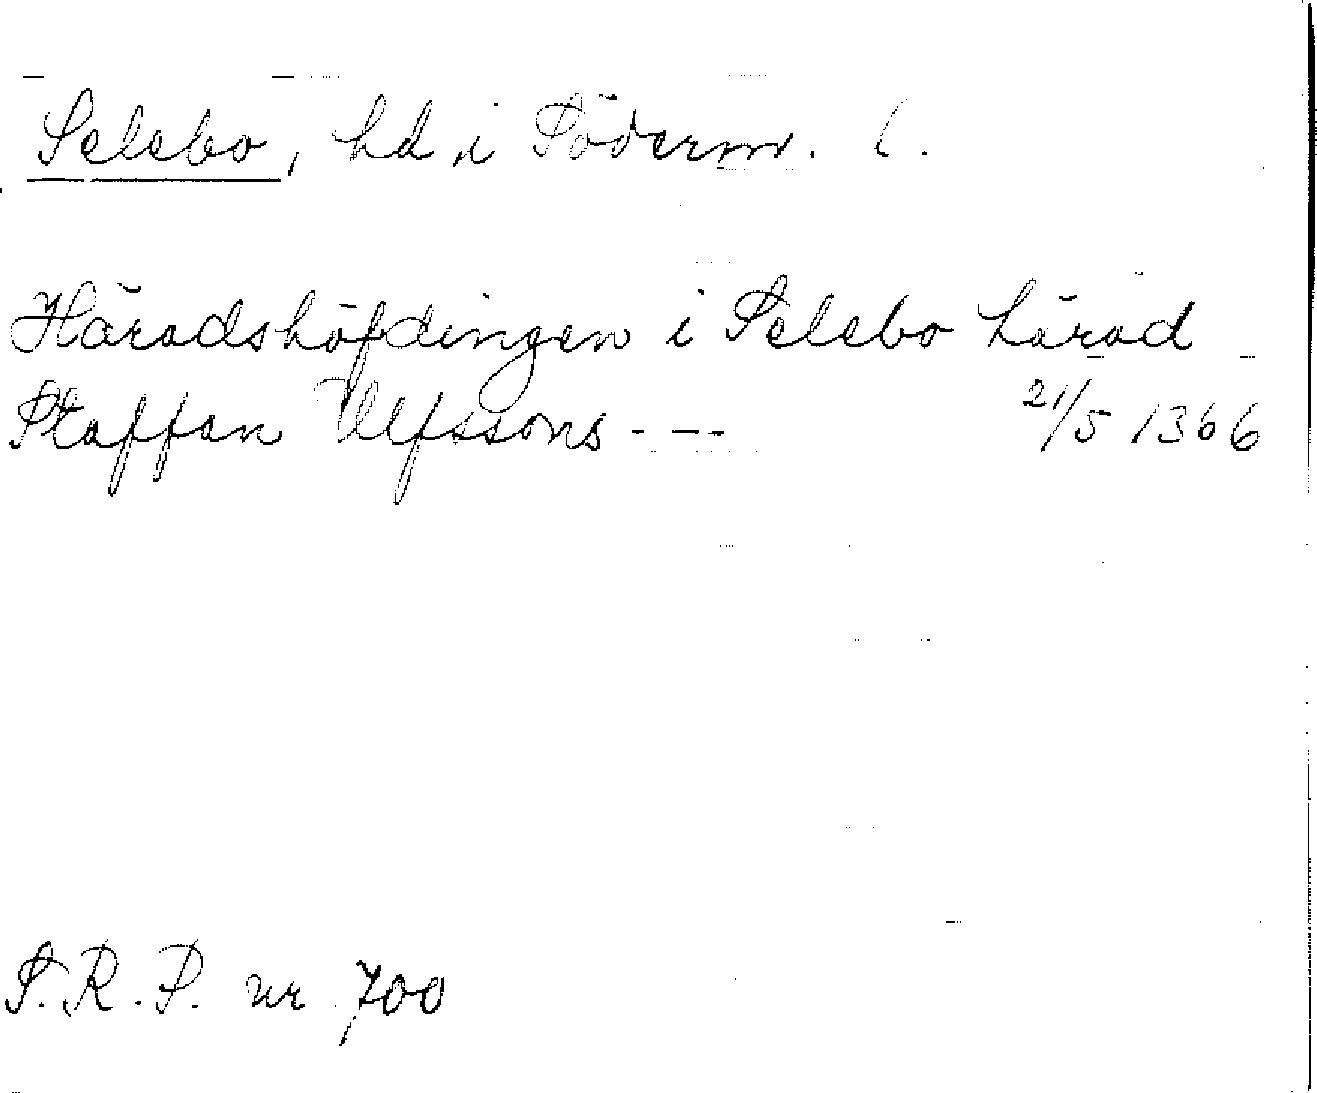 Selebo, hd i Söderm. l.
Häradshöfdingen i Selebo härad
Staffan Ulfssons - - - 21/5 1366
S.R.P. nr 700